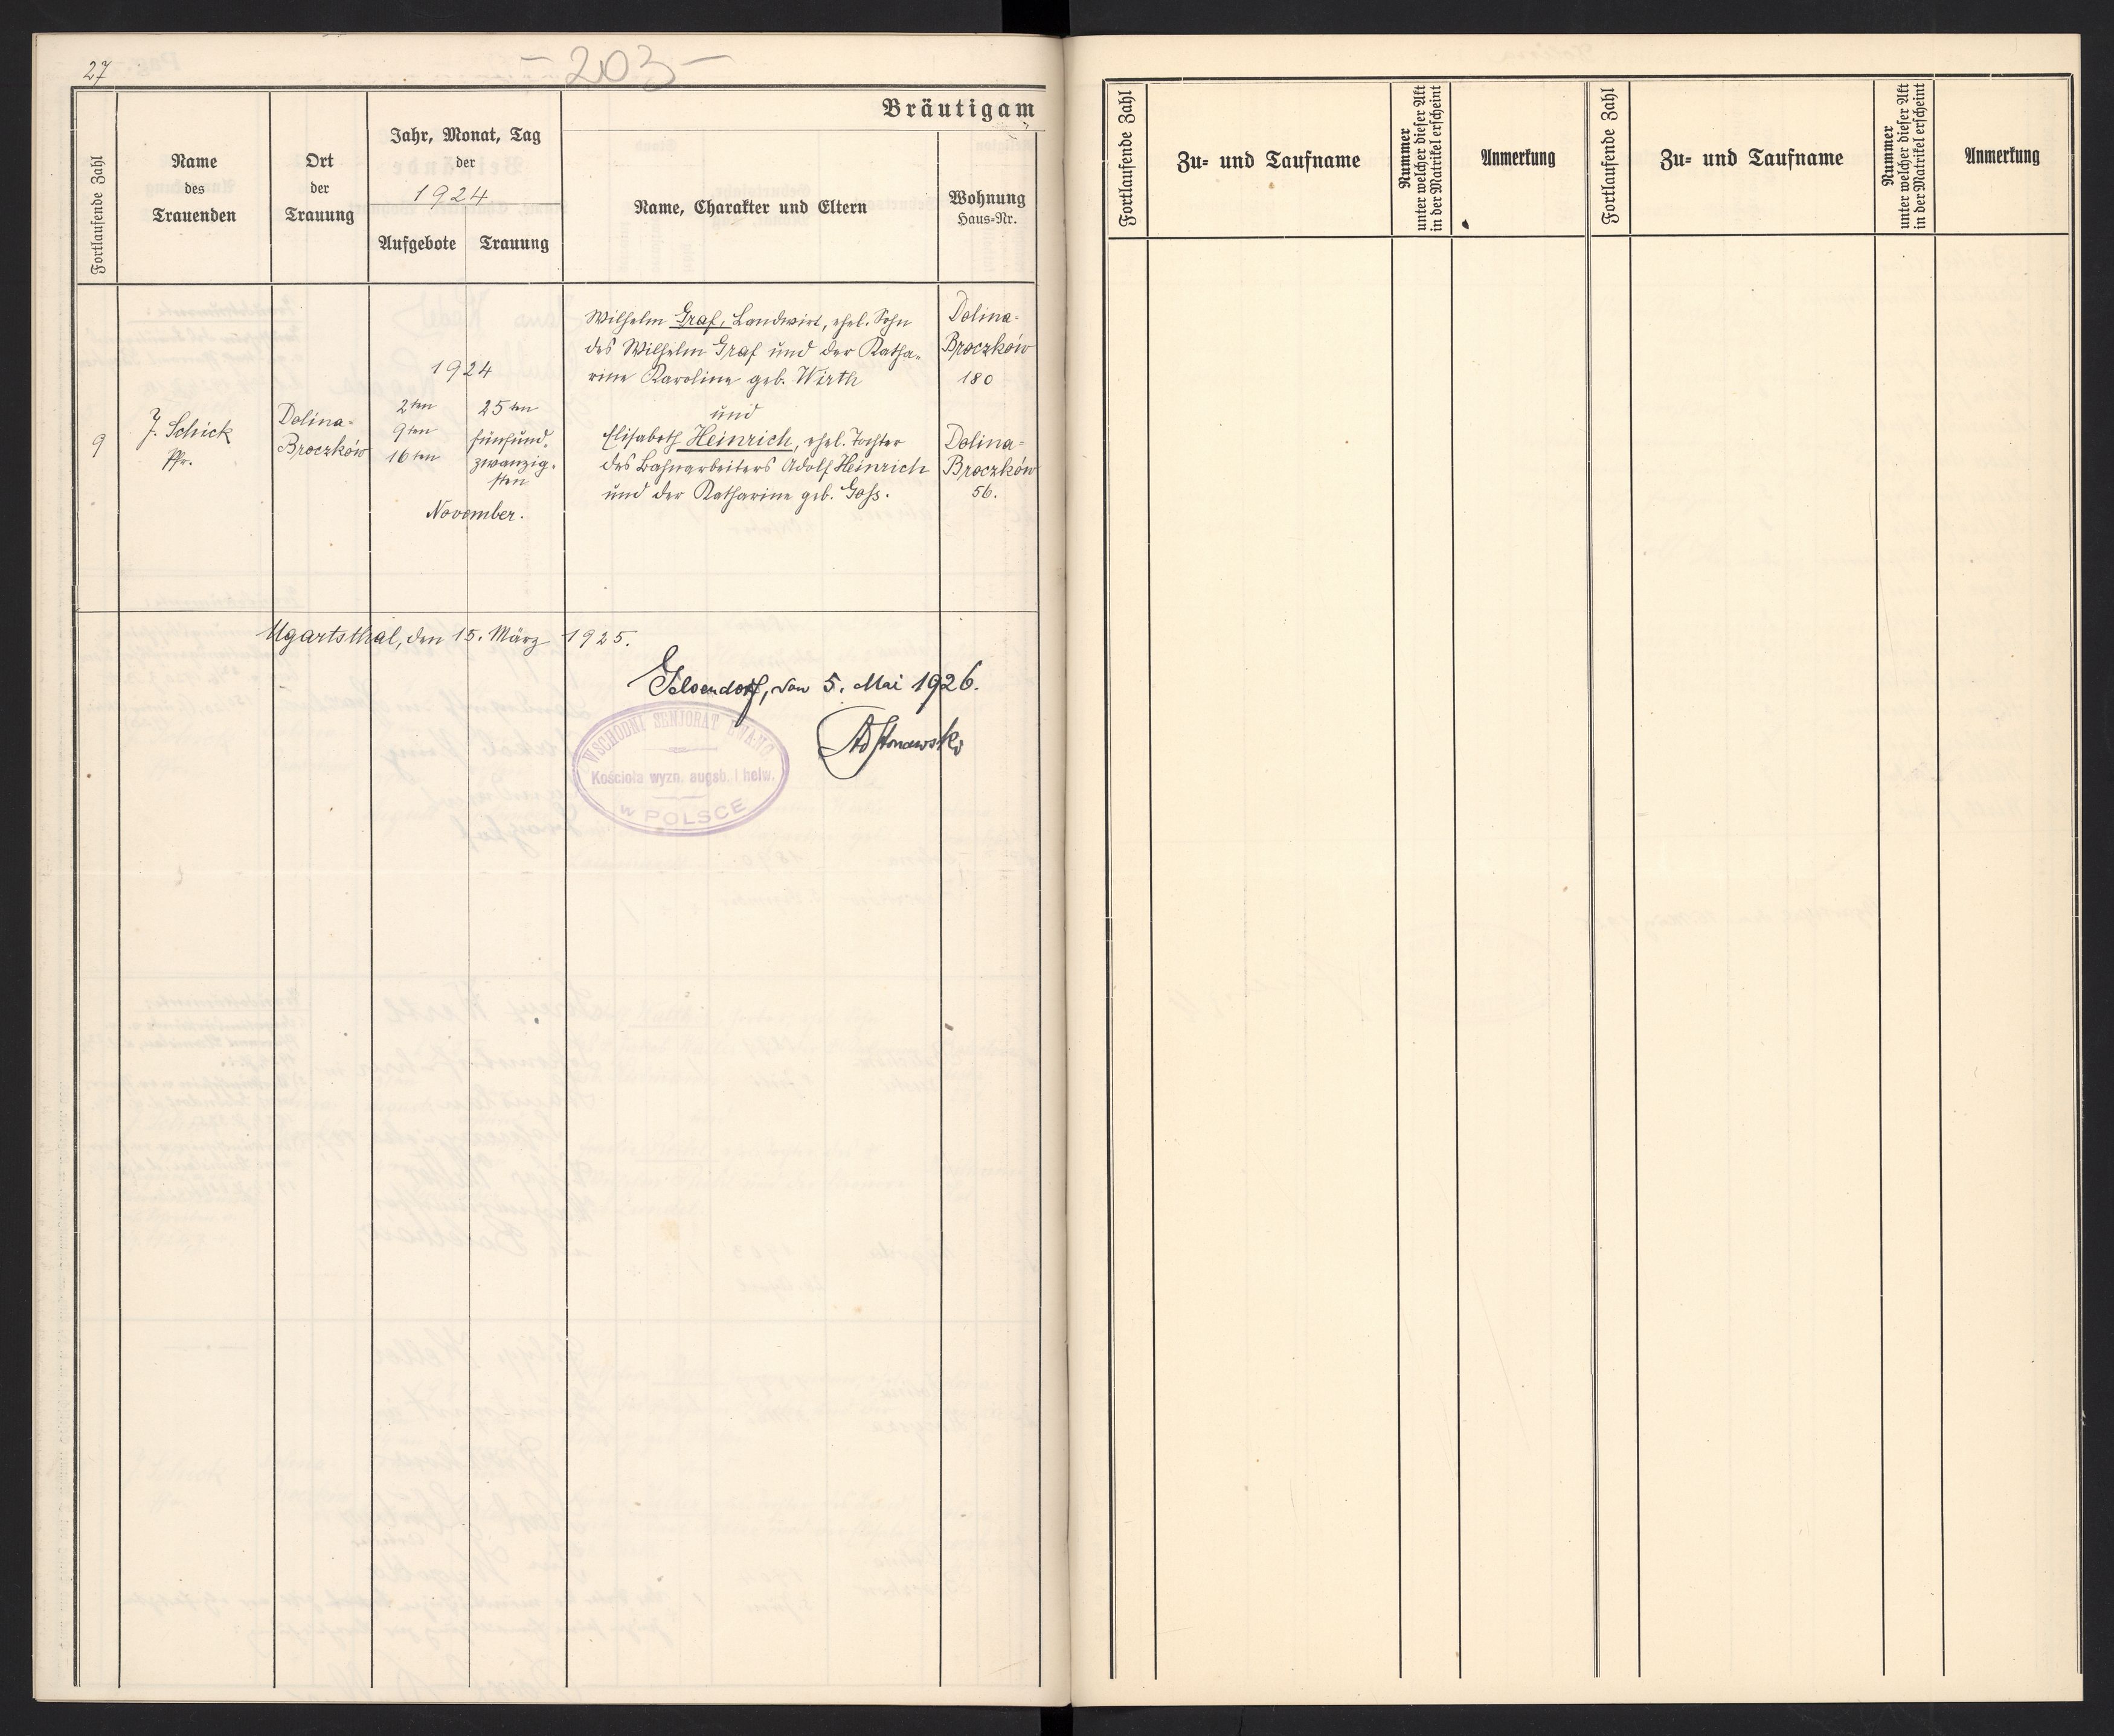 27
- 203 -
Fortlaufende Zahl
Name
des
Trauenden
Ort
der
Trauung
Jahr, Monat, Tag
der
1924
Aufgebote
Trauung
Bräutigam
Name, Charakter und Eltern
Wohnung
Haus-Nr.
9
J. Schick
Pfr.
Dolina-
Broczków
1924
2ten
9ten
16ten
25ten
fünfund-
zwanzig-
sten
November.
Wilhelm Graf, Landwirt, ehel. Sohn
des Wilhelm Graf und der Katha-
rine Karoline geb. Wirth
und
Elisabeth Heinrich, ehel. Tochter
des Bahnarbeiters Adolf Heinrich
und der Katharine geb. Gass.
Dolina-
Broczków
180
Dolina-
Broczków
56.
Ugartsthal, den 15. März 1925.
Gelsendorf, den 5. Mai 1926.
WSCHODNI SENJORAT EWANG.
Kościoła wyzn. augsb. i helw.
W POLSCE
Fortlaufende Zahl
Zu- und Taufname
Nummer
unter welcher dieser Akt
in der Matrikel erscheint
Anmerkung
Fortlaufende Zahl
Zu- und Taufname
Nummer
unter welcher dieser Akt
in der Matrikel erscheint
Anmerkung